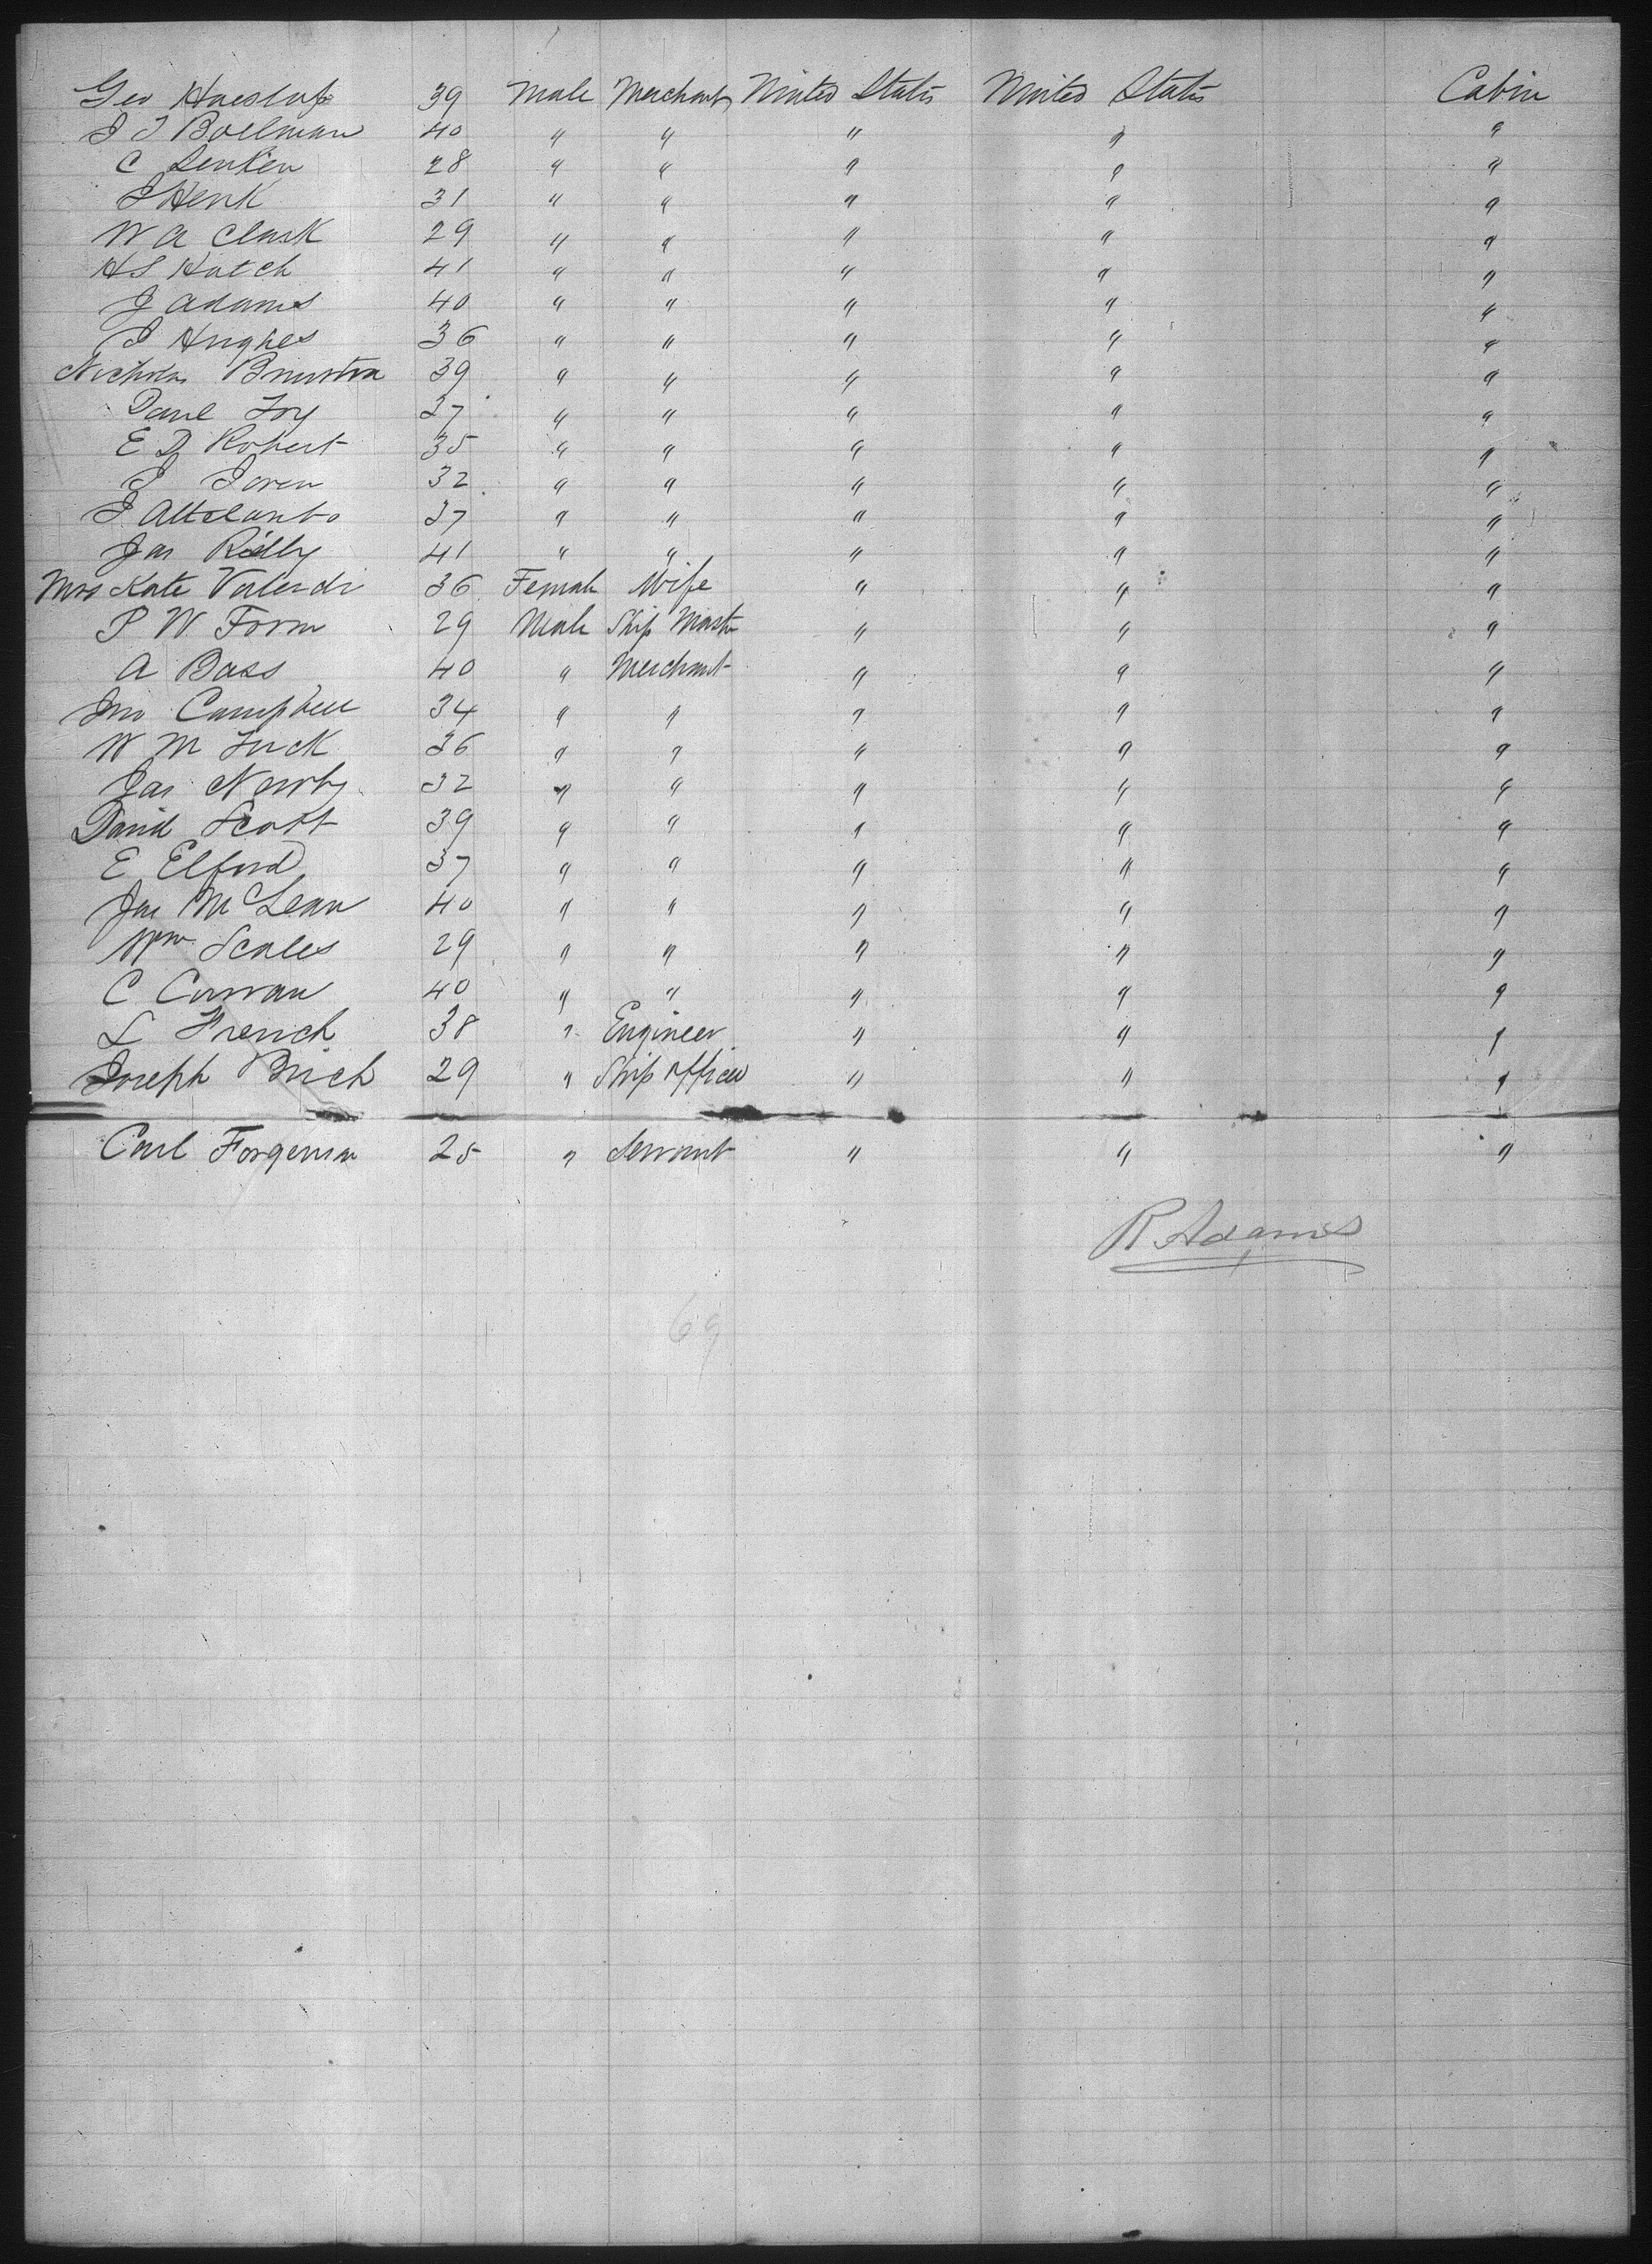 Geo Haeslop 39 Male Merchant United States United States Cabin
J J Boelman 40 " " " " "
C Lenken 28 " " " " "
J Henk 31 " " " " "
W A Clark 29 " " " " "
H S Hatch 41 " " " " "
J Adams 40 " " " " "
J Hughes 36 " " " " "
Nicholas 39 " " " " "
37 " " " " "
E D Robert 35 " " " " "
J 32 " " " " "
J 37 " " " " "
Jas Reilly 41 " " " " "
Mrs Kate Valerdi 36 Female Wife " " "
P W Form 29 Male Ship Master " " "
A Bass 40 " Merchant " " "
Jno Campbell 34 " " " " "
W M Tuck 36 " " " " "
Jas Newby 32 " " " " "
David Scott 39 " " " " "
E Elford 37 " " " " "
Jas McLean 40 " " " " "
Wm Scales 29 " " " " "
C Curran 40 " " " " "
L French 38 " Engineer " " "
Joseph 29 " Ship Officer " " "
Carl 25 " Servant " " "
R. Adams
69